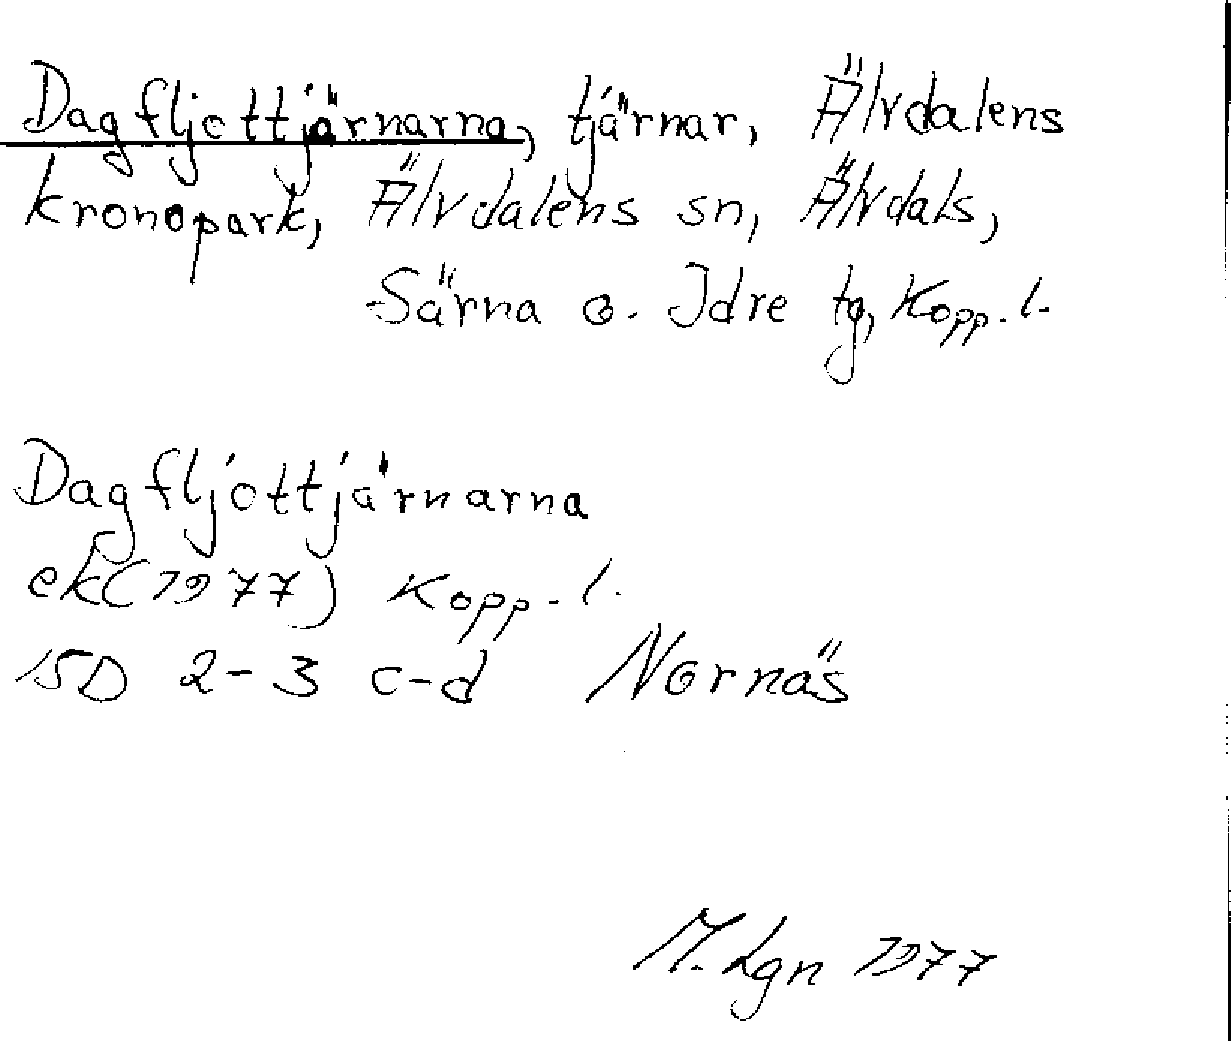 Dagfljottjärnarna, tjärnar, Älvdalens
kronopark, Älvdalens sn, Älvdals,
Särna o. Idre tg, Kopp. l.
Dagfljottjärnarna
ek(1977) Kopp. l.
15D 2-3 c-d Nornäs
M. Lgn 1977